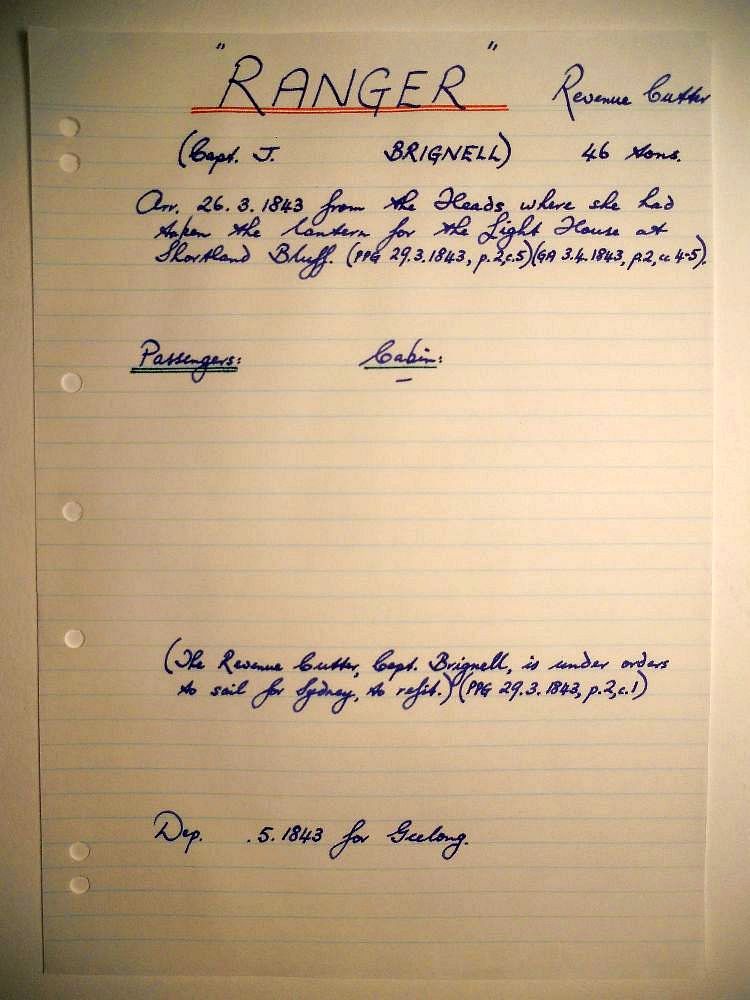 "RANGER" Revenue Cutter
(Capt. J. BRIGNELL) 46 tons.
Arr. 26.3.1843 from the Heads, where she had
taken the lantern for the Light House at
Shortland Bluff. (PPG 29.3.1843, p.2,c.5)(GA 3.4.1843, p.2, cc 4-5).
Passengers: Cabin:
–
(The Revenue Cutter, Capt. Brignell, is under orders
to sail for Sydney, to refit.) (PPG 29.3.1843, p.2,c.1)
Dep. .5.1843 for Geelong.